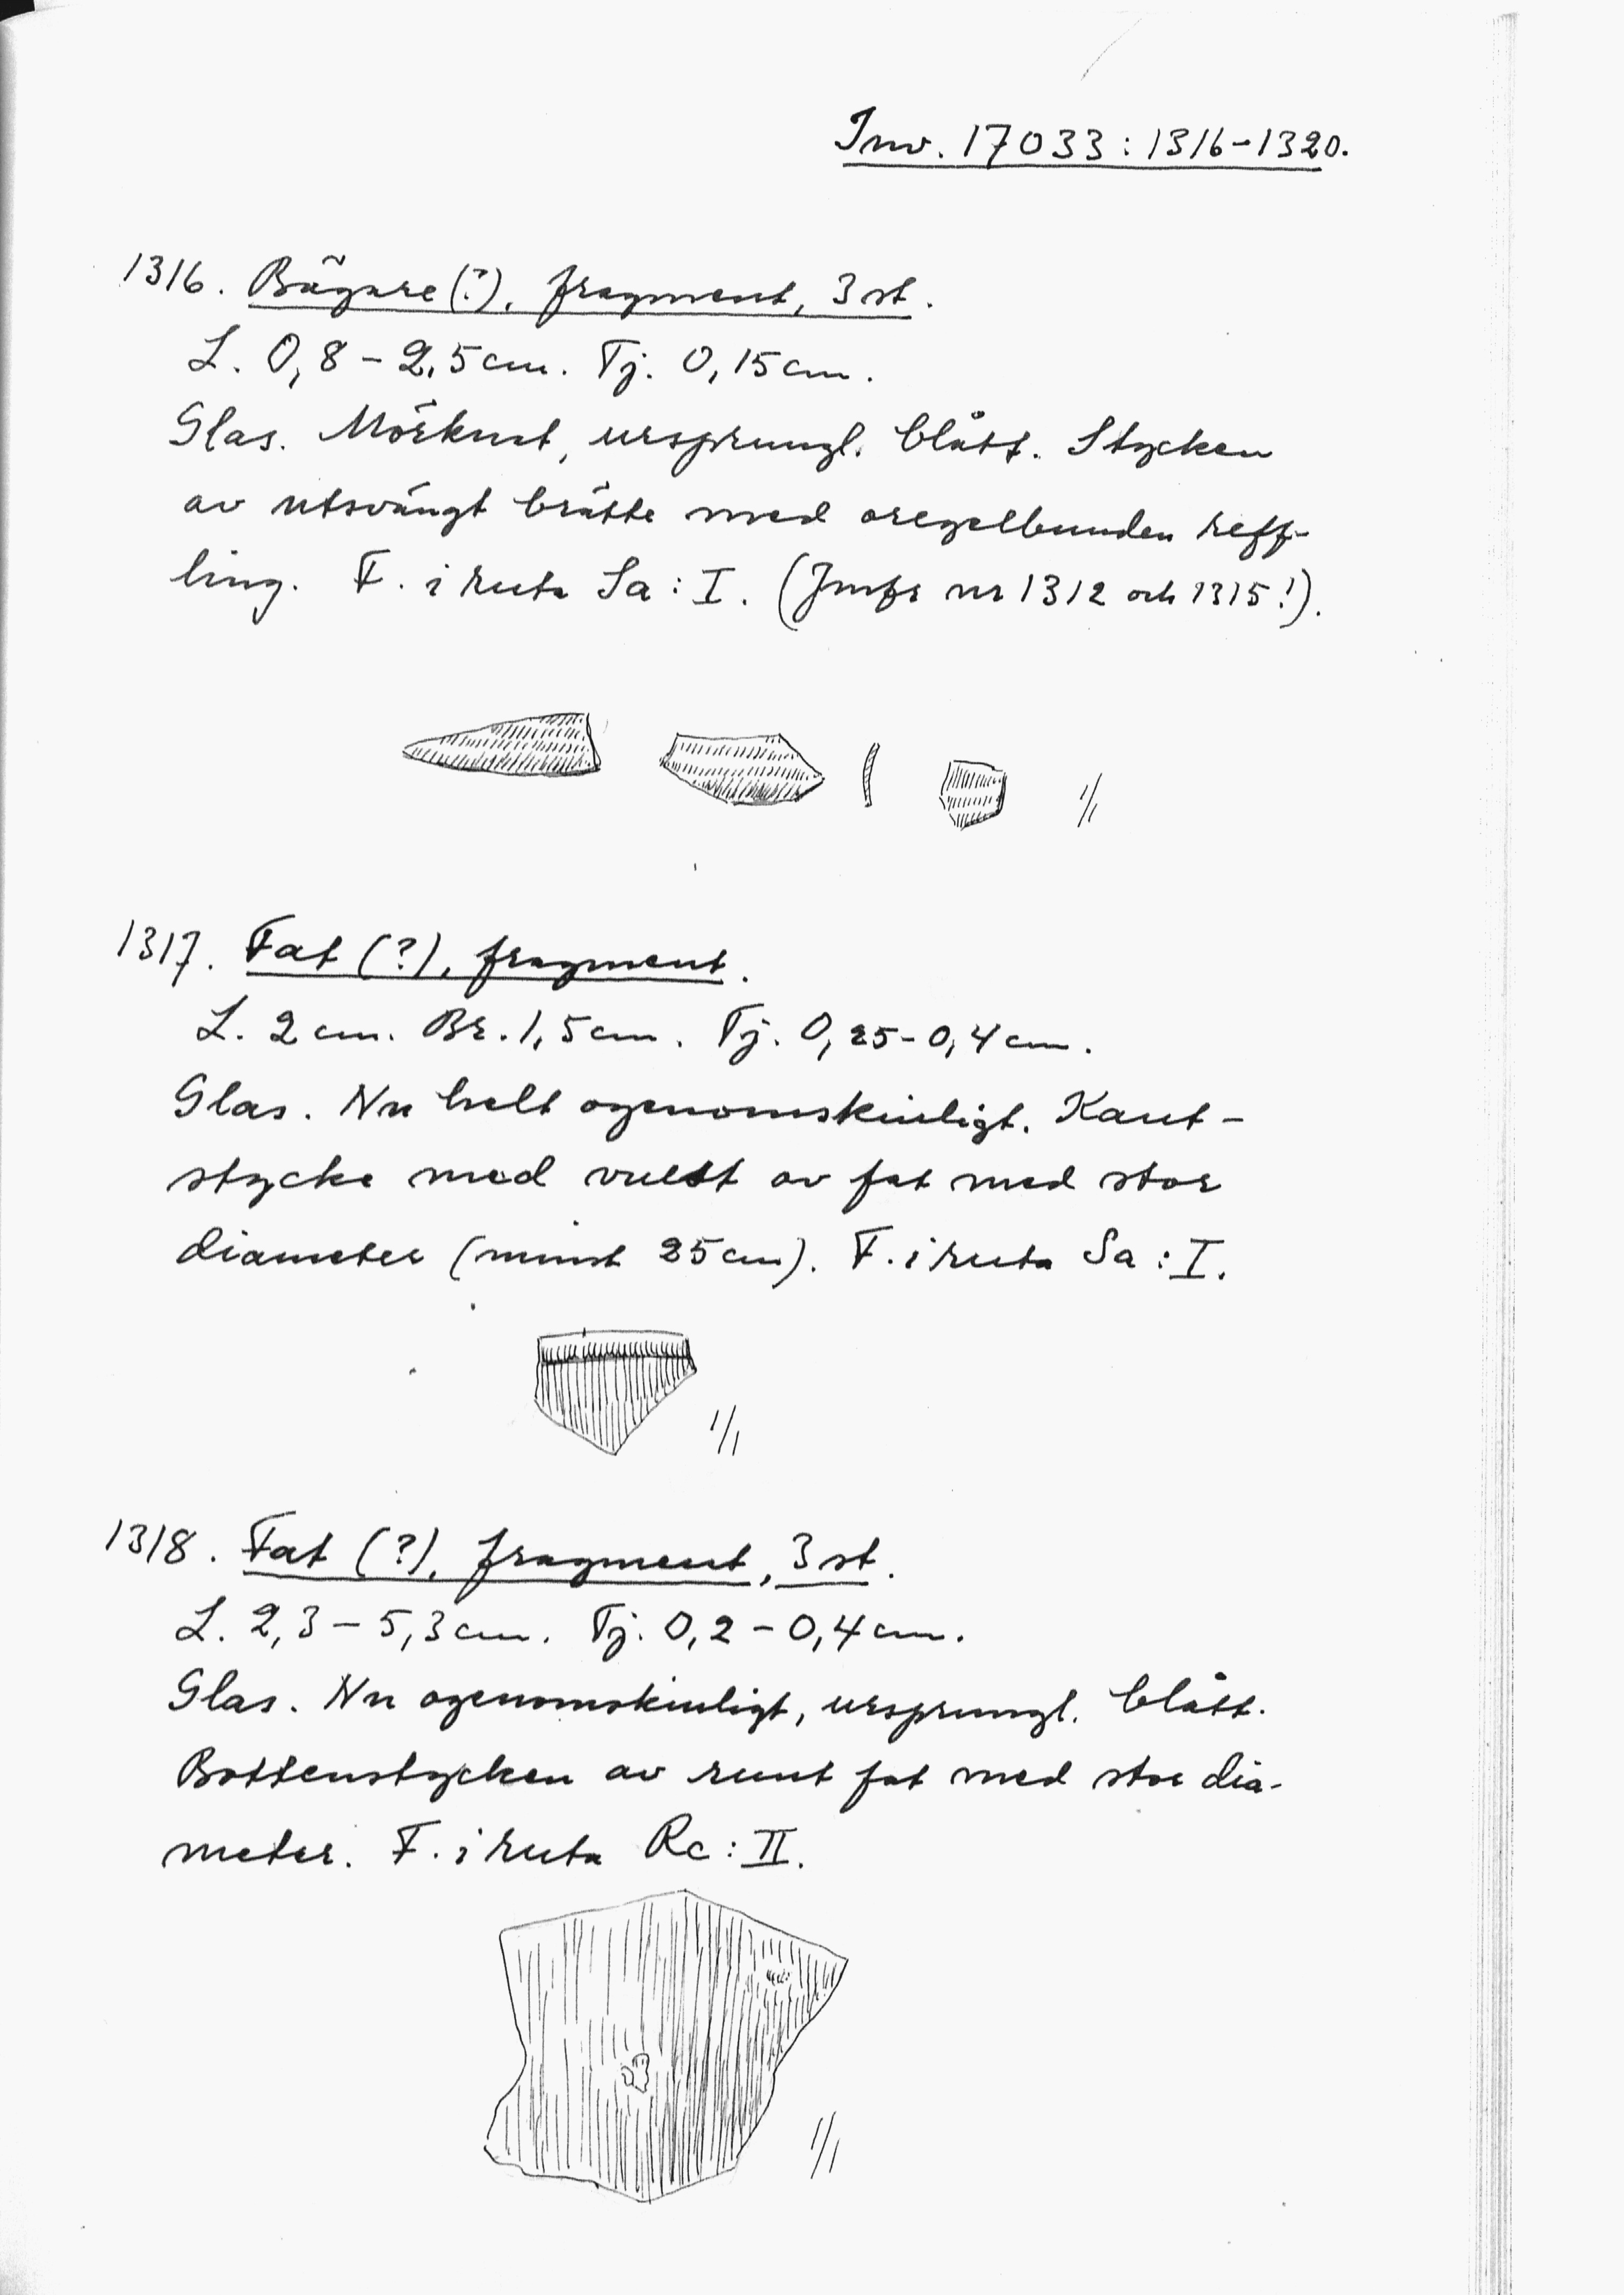 Inv. 17033:1316-1320.
1316. Bägare(?), fragment, 3 st.
L. 0,8 - 2,5 cm. Tj. 0,15 cm.
Glas. Mörknat, ursprungl. blått. Stycken
av utsvängt brätte med oregelbunden reff-
ling. F. i ruta Sa:I. (Jmfr nr 1312 och 1315!).
1/1
1317. Fat (?), fragment.
L. 2 cm. Br. 1,5 cm. Tj. 0,25-0,4 cm.
Glas. Nu helt ogenomskinligt. Kant-
stycke med vulst av fat med stor
diameter (minst 25 cm). F. i ruta Sa:I.
1/1
1318. Fat (?), fragment, 3 st.
L. 2,3 - 5,3 cm. Tj. 0,2 - 0,4 cm.
Glas. Nu ogenomskinligt, ursprungl. blått.
Bottenstycken av runt fat med stor dia-
meter. F. i ruta Rc:II.
1/1